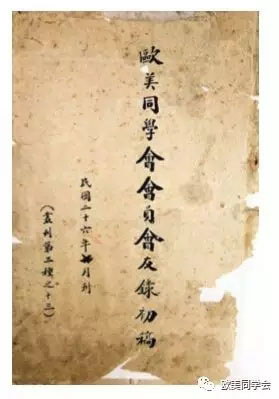 歐美同學會會員會友錄初稿
民國二十六年月刊
(叢刊第二種之十三)
欧美同学会